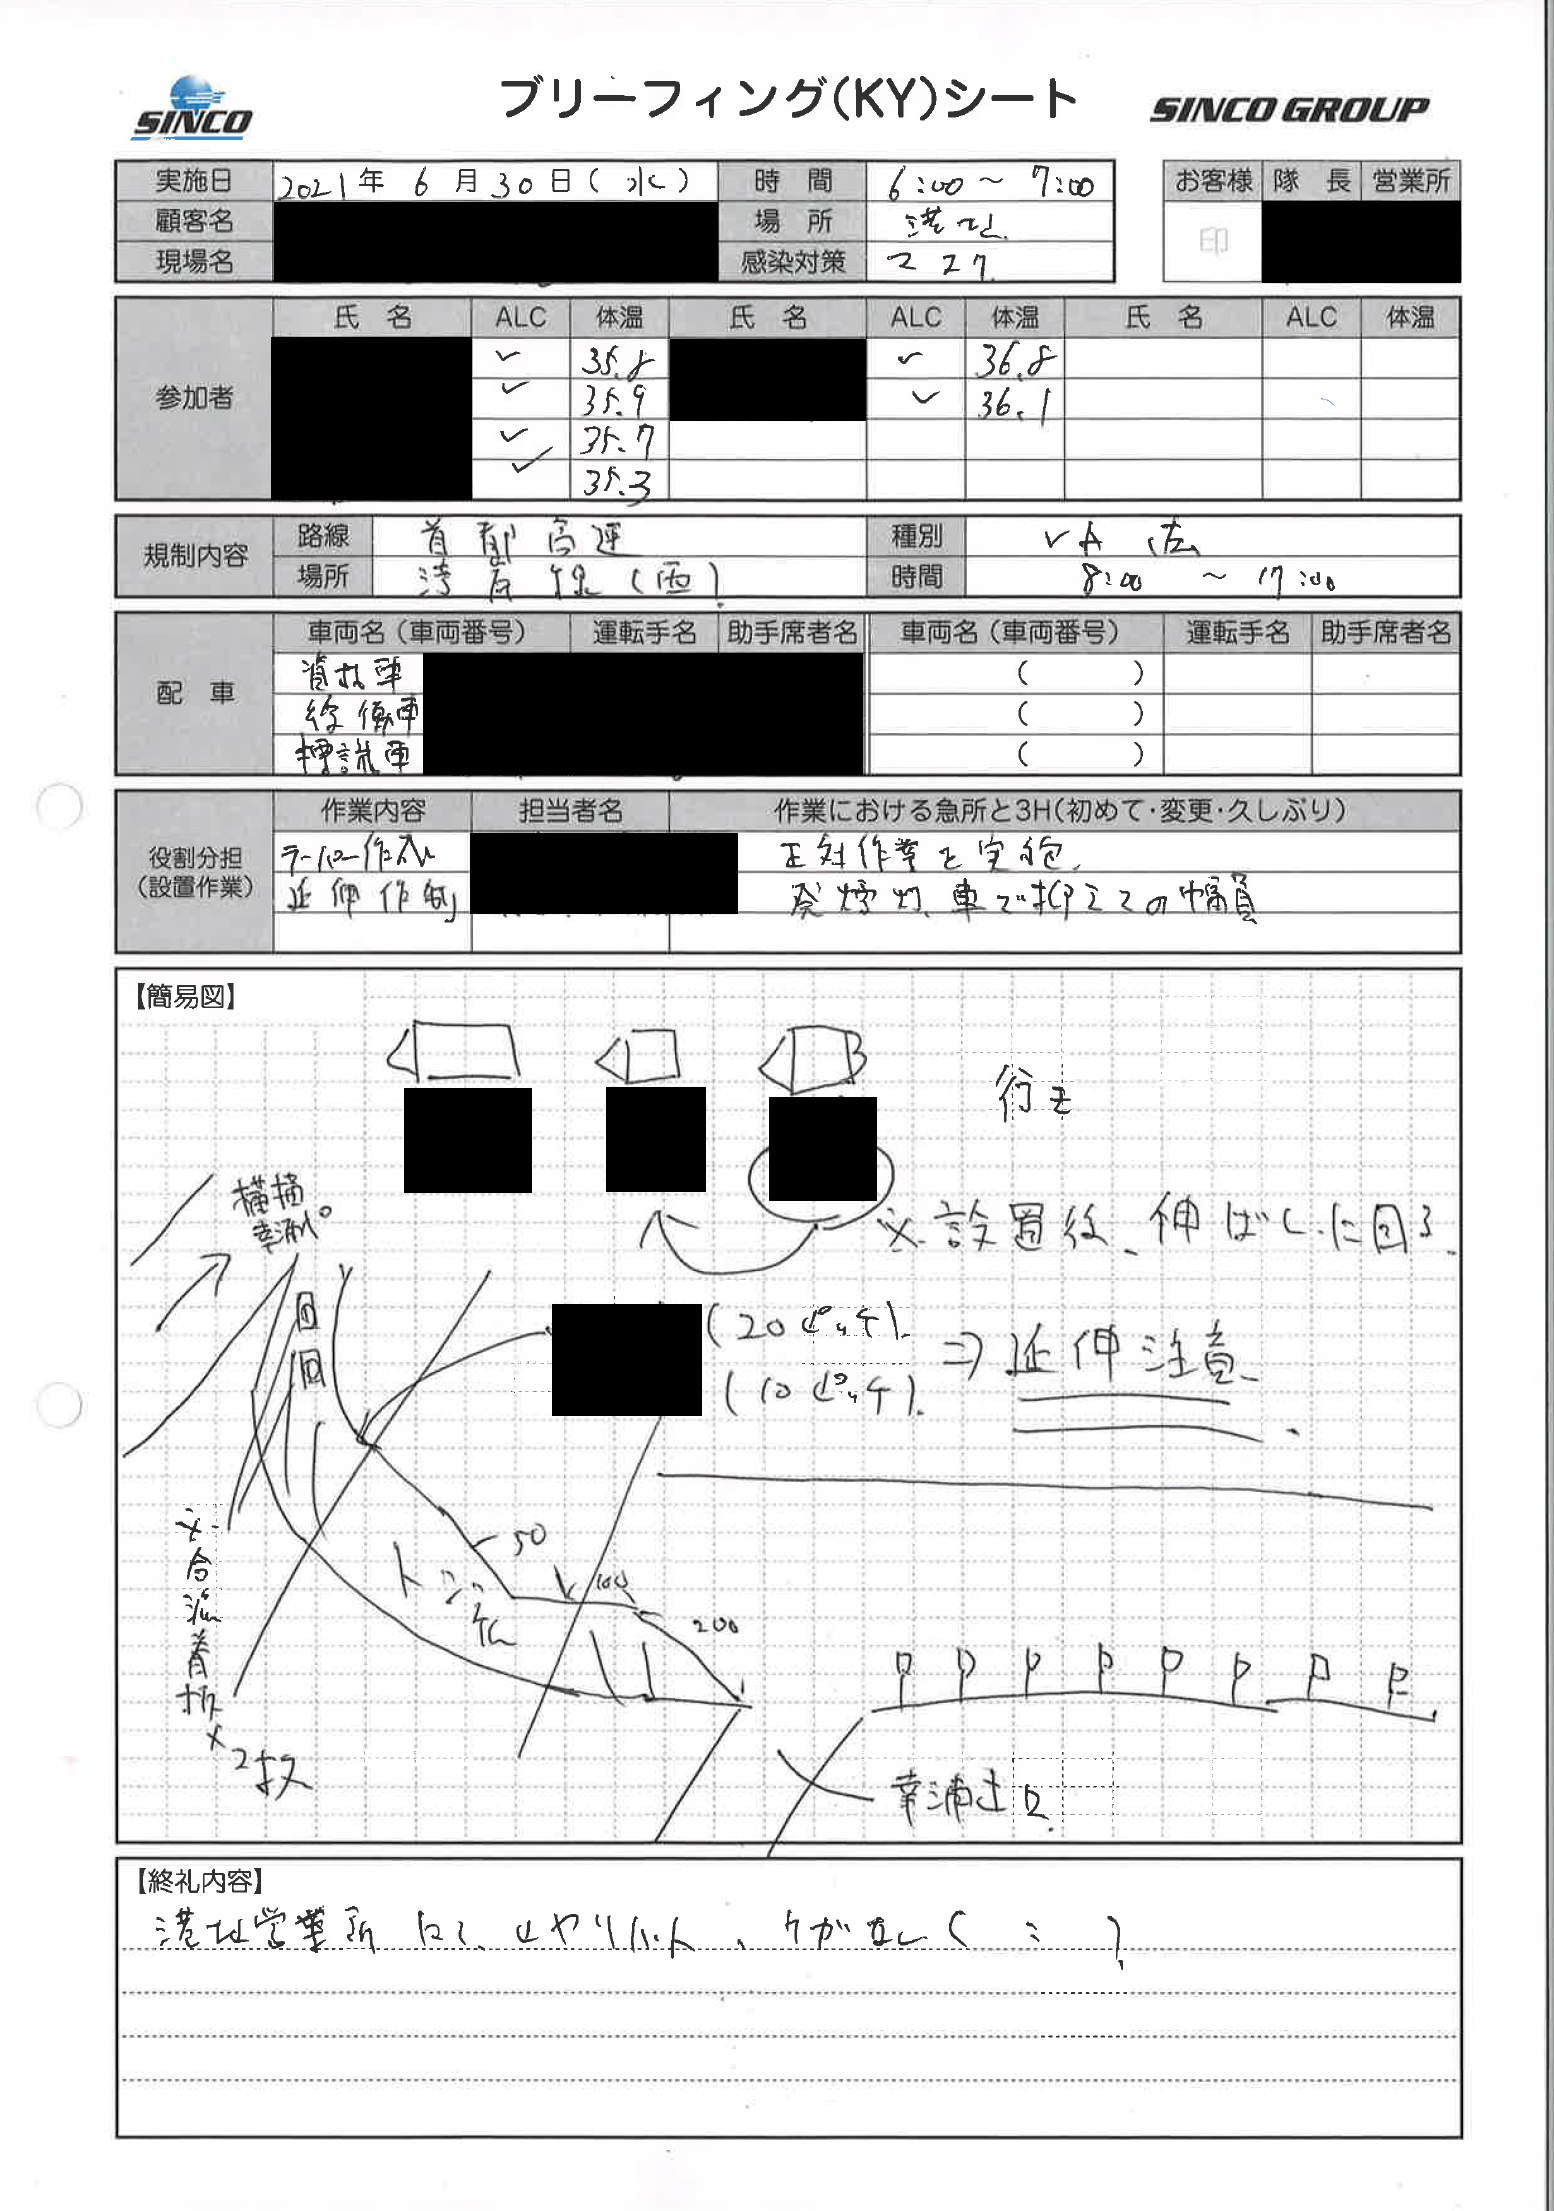 SINCO
ブリーフィング(KY)シート
SINCO GROUP
実施日 2021年 6月30日(水) 時間 6:00～7:00
お客様 隊長 営業所
顧客名 場所 港北
印
現場名 感染対策 マスク
氏名 ALC 体温 氏名 ALC 体温 氏名 ALC 体温
参加者
✓ 35.8 ✓ 36.8
✓ 35.9 ✓ 36.1
✓ 35.7
✓ 35.3
規制内容 路線 首都高速 種別
場所 湾岸線(西) 時間 8:00 ～ 17:00
配車 車両名(車両番号) 運転手名 助手席者名 車両名(車両番号) 運転手名 助手席者名
( )
( )
標識車 ( )
作業内容 担当者名 作業における急所と3H(初めて・変更・久しぶり)
役割分担
(設置作業)
テーパー作成 正対作業を実施
延伸作制 発煙灯、車で抑えての幅員
【簡易図】
※設置後、伸ばしに回る
(20ピッチ) ⇒延伸注意
(10ピッチ)
50
100
200
※合流看板×2枚
幸浦出口
【終礼内容】
港北営業所にて、ヒヤリハット、ケガなし( : )